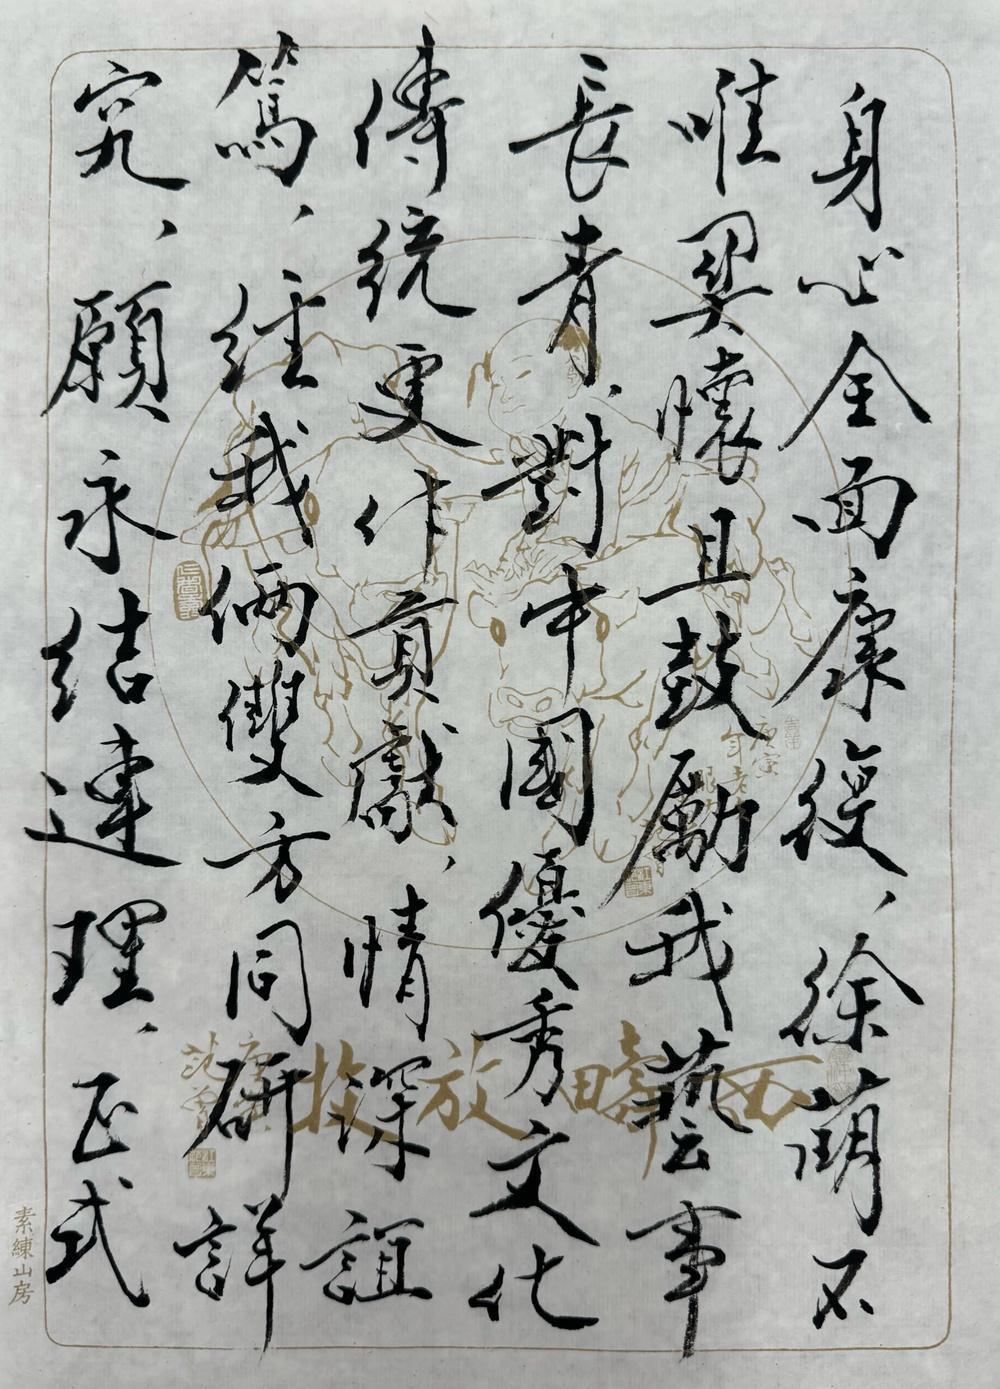 身心全面康復、徐萌不
唯契懷且鼓勵我藝事
長青、對中國優秀文化
傳統更作貢獻、情深誼
篤、經我倆雙方同研詳
究、願永結連理、正式
西疇放牧
庚寅
范曾
素練山房